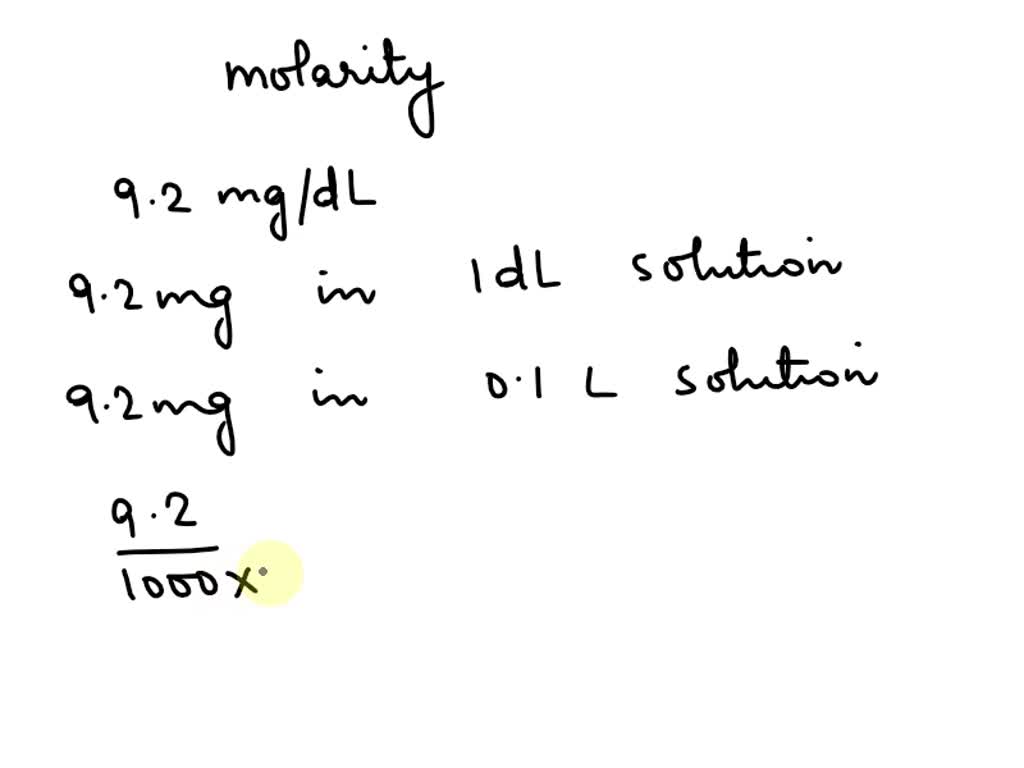 molarity
9.2 mg/dL
9.2 mg in 1 dL solution
9.2 mg in 0.1 L solution
9.2
1000 x